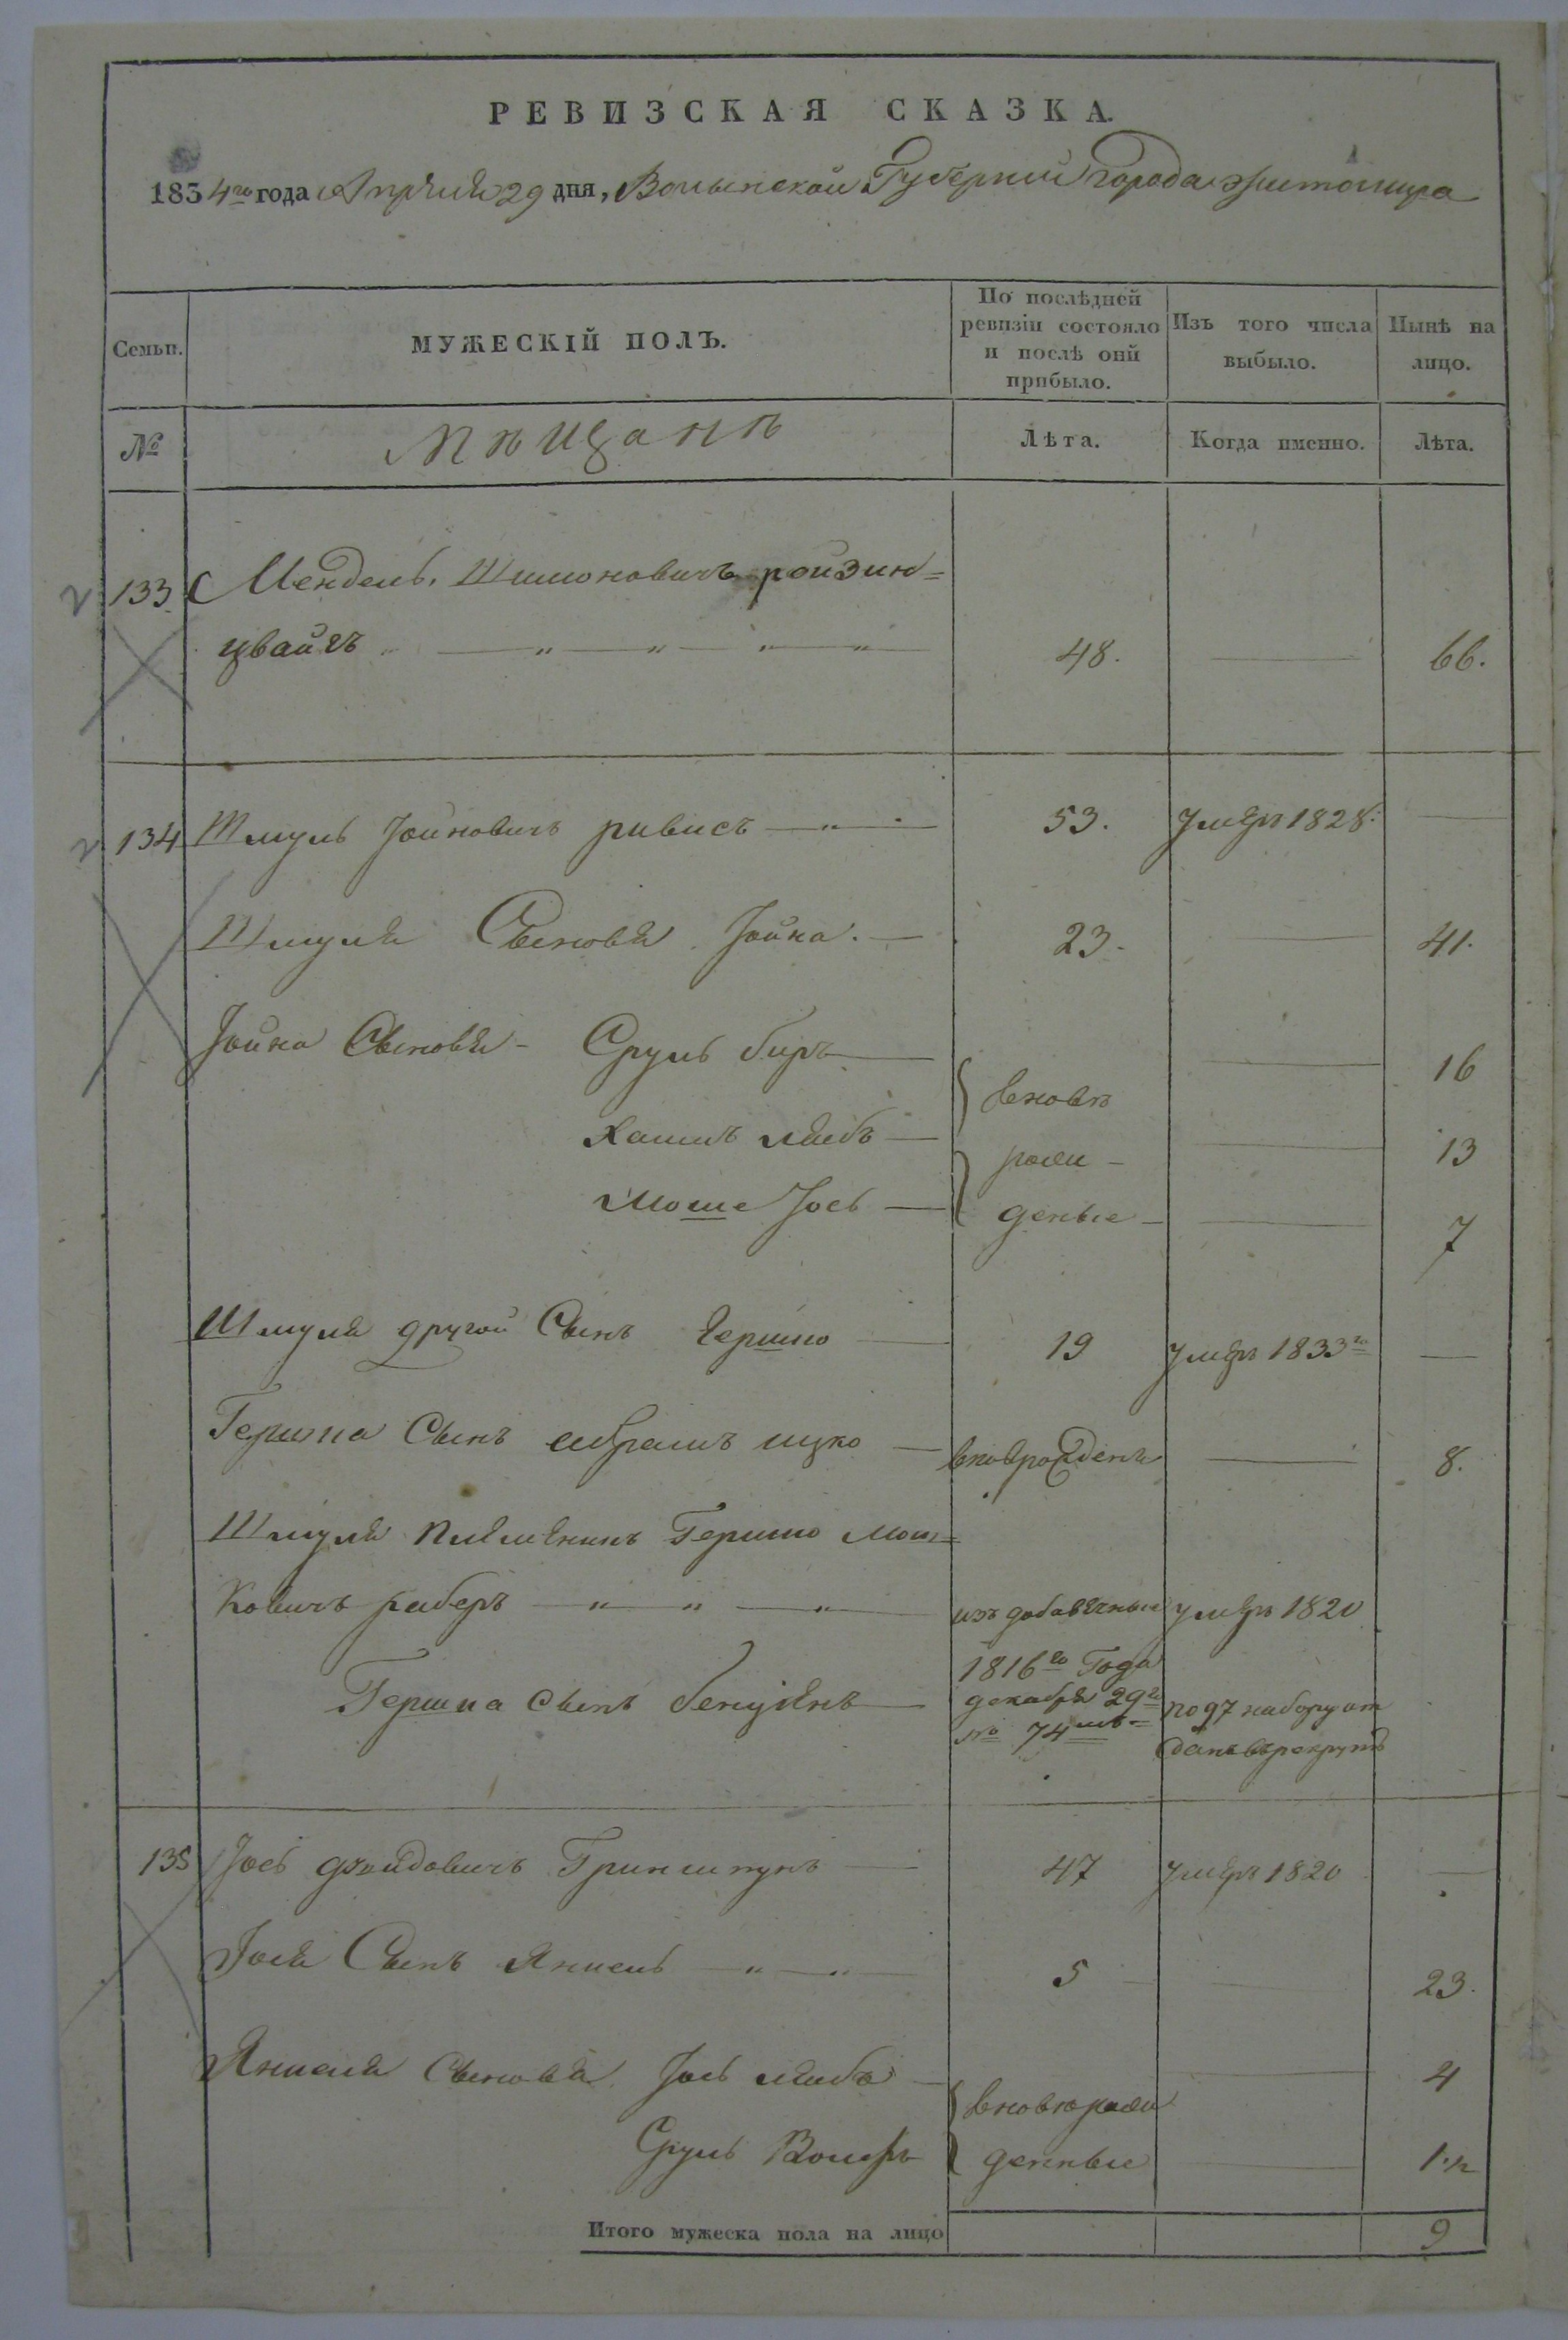 РЕВИЗСКАЯ СКАЗКА.
1834го года Апреля 29 дня, Волынской Губернии города Житомира
Семьи.
МУЖЕСКІЙ ПОЛЪ.
По послѣдней ревизіи состояло и послѣ онй прибыло.
Изъ того числа выбыло.
Нынѣ на лицо.
№
Мѣщанѣ
Лѣта.
Когда именно.
Лѣта.
133 Мендель Шимоновичъ ройзин=
цвайгъ 48. 66.
134 Шмуль Іойновичъ ривисъ 53. умеръ 1828.
Шмуля Сыновья Іойна. 23. 41.
Іойна Сыновья Сруль беръ 16
вновь
Хаимъ лейбъ 13
рож-
Моше Іось 7
деные
Шмуля другой Сынъ Гершко 19 умеръ 1833го
Гершка Сынъ абрамъ ицко вноврожденъ 8.
Шмуля племеникъ Гершко Мош=
ковичъ раберъ изъ добавочныхъ умеръ 1820
1816го Года
Гершка сынъ бенциенъ декабря 29го по 97 набору от
№ 74мъ
данъ въ рекруты
135 Іось дувидовичъ Гриншпунъ 47 умеръ 1820
Іося Сынъ Янкель 5 23.
Янкеля Сыновья Іось лейбъ 4
вновьрож
Сруль Вольфъ 1½
денные
Итого мужеска пола на лицо 9